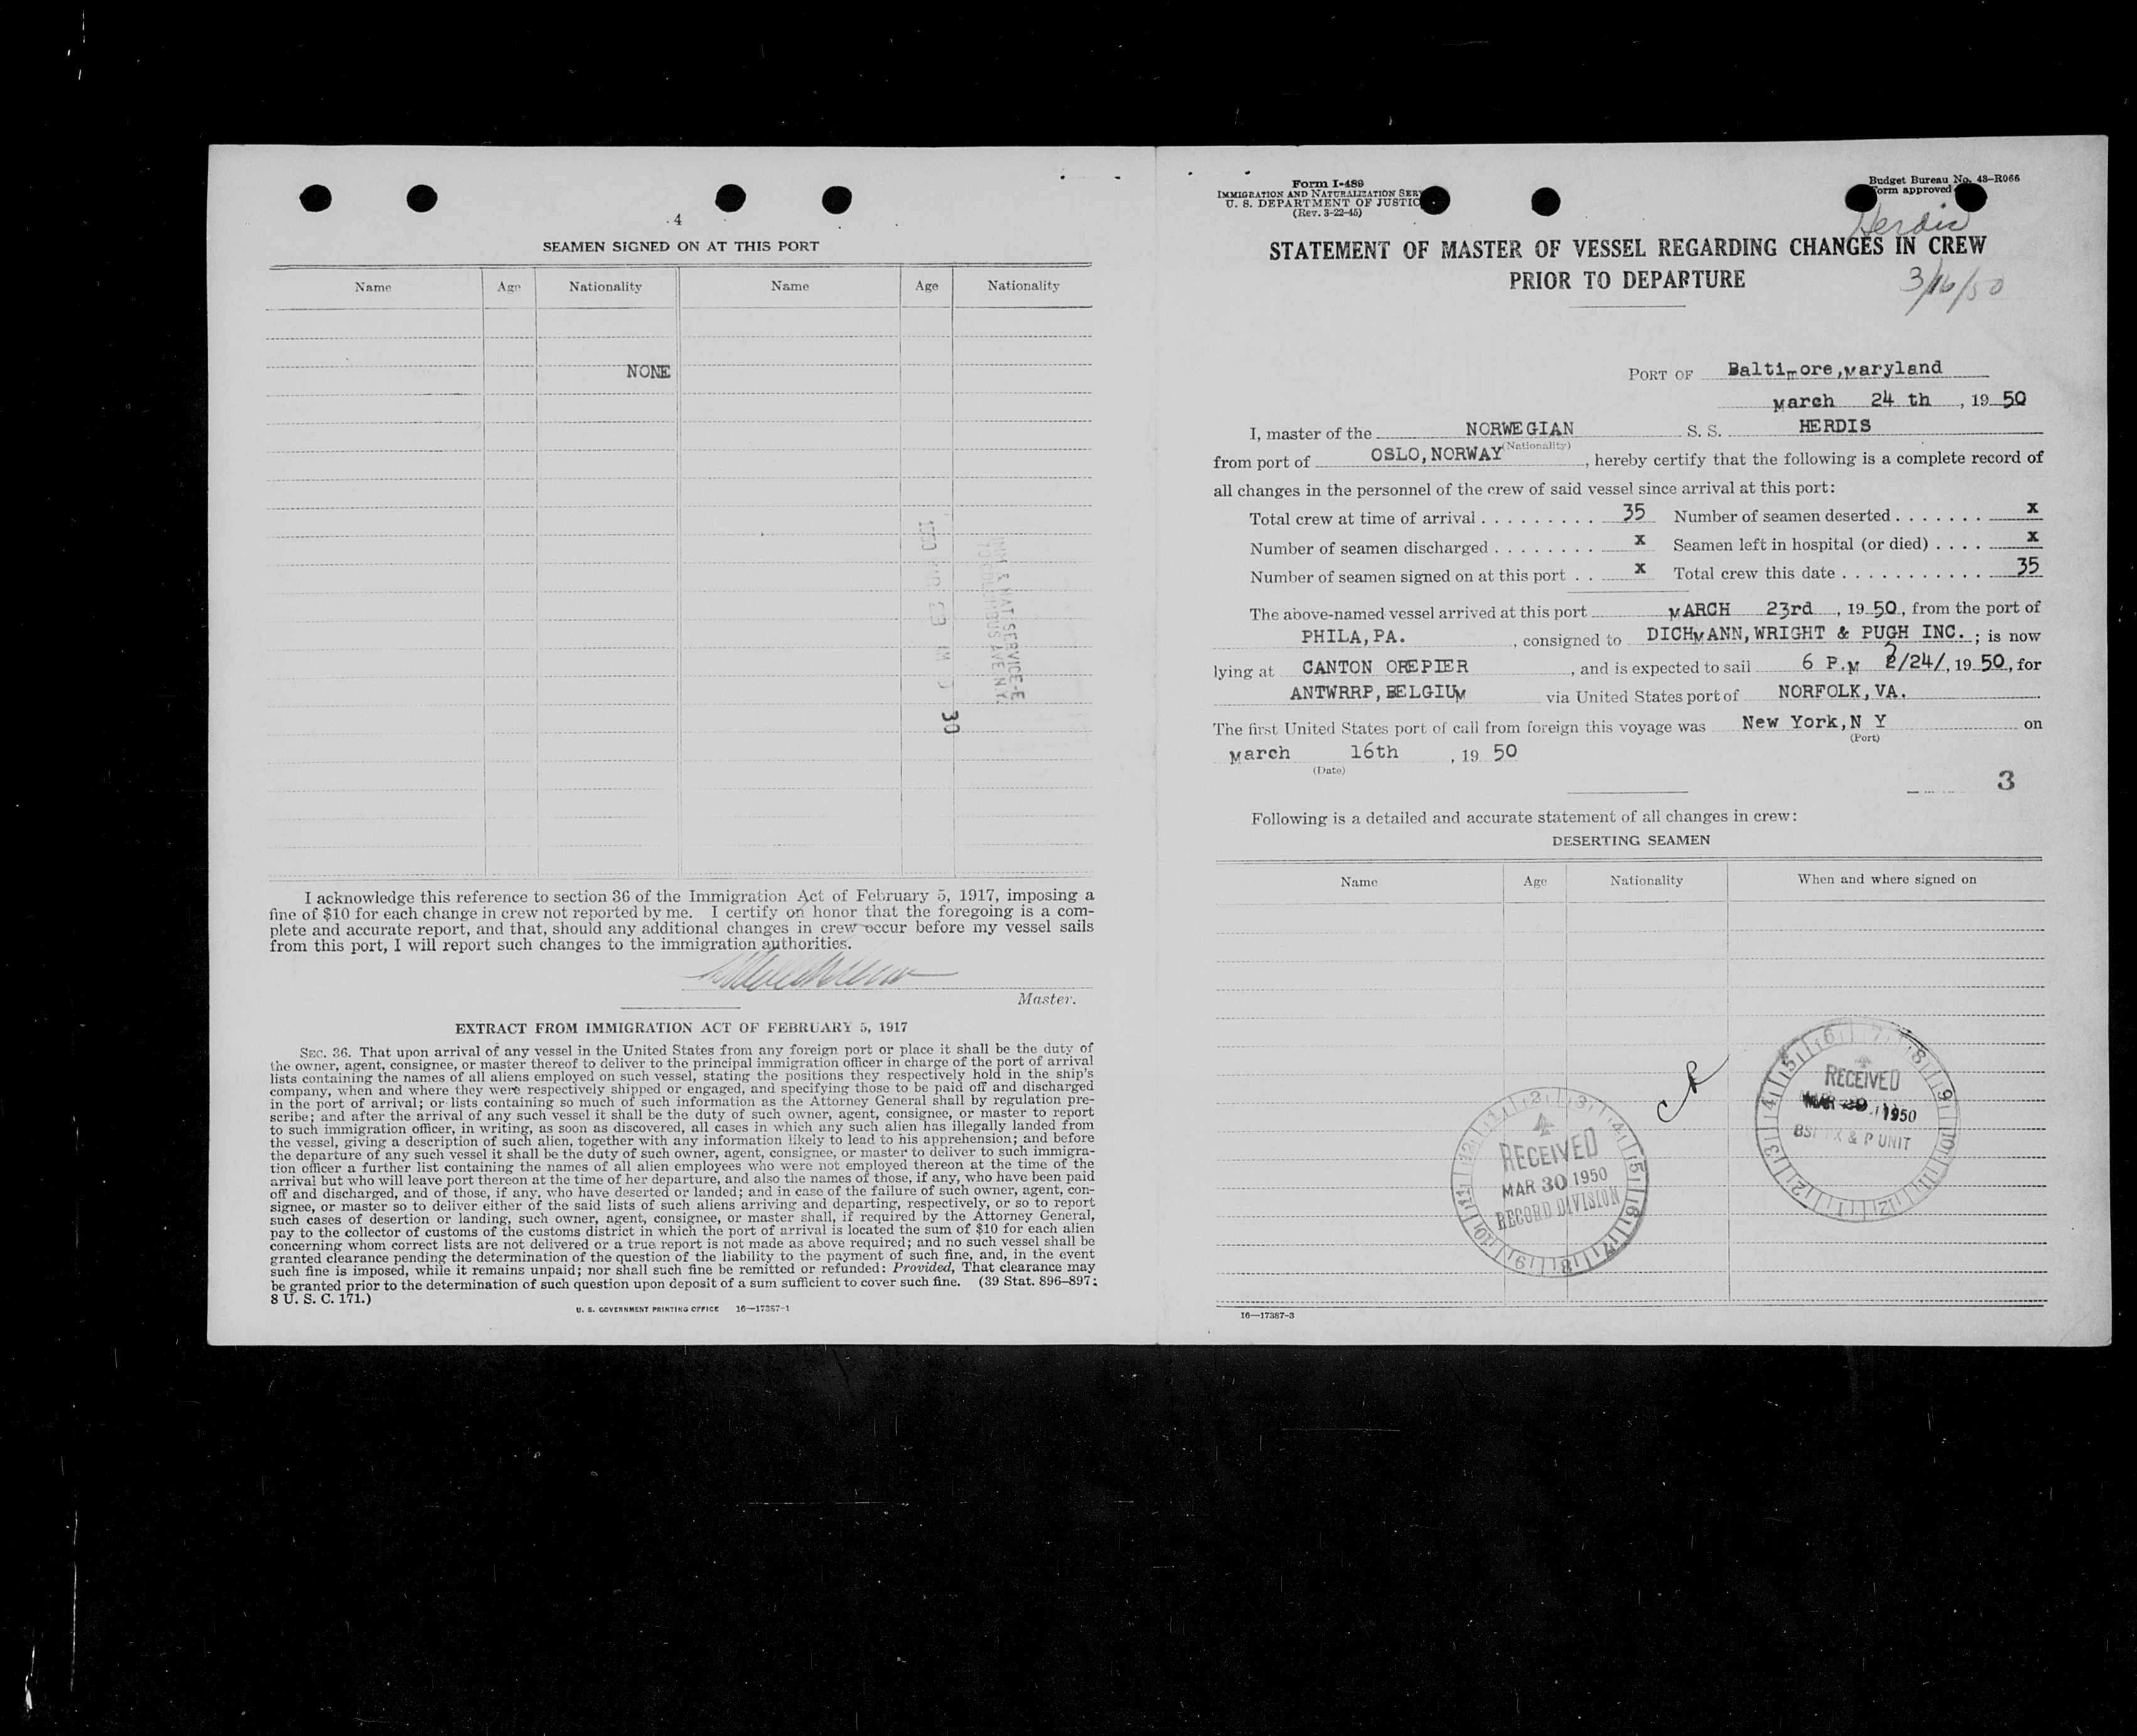 4
SEAMEN SIGNED ON AT THIS PORT
Name Age Nationality Name Age Nationality
NONE
30
I acknowledge this reference to section 36 of the Immigration Act of February 5, 1917, imposing a
fine of $10 for each change in crew not reported by me. I certify on honor that the foregoing is a com-
plete and accurate report, and that, should any additional changes in crew occur before my vessel sails
from this port, I will report such changes to the immigration authorities.
Master.
EXTRACT FROM IMMIGRATION ACT OF FEBRUARY 5, 1917
SEC. 36. That upon arrival of any vessel in the United States from any foreign port or place it shall be the duty of
the owner, agent, consignee, or master thereof to deliver to the principal immigration officer in charge of the port of arrival
lists containing the names of all aliens employed on such vessel, stating the positions they respectively hold in the ship's
company, when and where they were respectively shipped or engaged, and specifying those to be paid off and discharged
in the port of arrival; or lists containing so much of such information as the Attorney General shall by regulation pre-
scribe; and after the arrival of any such vessel it shall be the duty of such owner, agent, consignee, or master to report
to such immigration officer, in writing, as soon as discovered, all cases in which any such alien has illegally landed from
the vessel, giving a description of such alien, together with any information likely to lead to his apprehension; and before
the departure of any such vessel it shall be the duty of such owner, agent, consignee, or master to deliver to such immigra-
tion officer a further list containing the names of all alien employees who were not employed thereon at the time of the
arrival but who will leave port thereon at the time of her departure, and also the names of those, if any, who have been paid
off and discharged, and of those, if any, who have deserted or landed; and in case of the failure of such owner, agent, con-
signee, or master so to deliver either of the said lists of such aliens arriving and departing, respectively, or so to report
such cases of desertion or landing, such owner, agent, consignee, or master shall, if required by the Attorney General,
pay to the collector of customs of the customs district in which the port of arrival is located the sum of $10 for each alien
concerning whom correct lists are not delivered or a true report is not made as above required; and no such vessel shall be
granted clearance pending the determination of the question of the liability to the payment of such fine, and, in the event
such fine is imposed, while it remains unpaid; nor shall such fine be remitted or refunded: Provided, That clearance may
be granted prior to the determination of such question upon deposit of a sum sufficient to cover such fine. (39 Stat. 896–897;
8 U. S. C. 171.)
U. S. GOVERNMENT PRINTING OFFICE 16—17387-1
Form I-489
IMMIGRATION AND NATURALIZATION SER
U. S. DEPARTMENT OF JUSTIC
(Rev. 3-22-45)
Budget Bureau No. 43-R066
orm approved
Herdis
STATEMENT OF MASTER OF VESSEL REGARDING CHANGES IN CREW
PRIOR TO DEPARTURE
3/16/50
PORT OF Baltimore,Maryland
March 24 th , 19 50
I, master of the NORWEGIAN S. S. HERDIS
(Nationality)
from port of OSLO,NORWAY , hereby certify that the following is a complete record of
all changes in the personnel of the crew of said vessel since arrival at this port:
Total crew at time of arrival . . . . . . . . . 35 Number of seamen deserted . . . . . . . x
Number of seamen discharged . . . . . . . . x Seamen left in hospital (or died) . . . . x
Number of seamen signed on at this port . . x Total crew this date . . . . . . . . . . . . 35
The above-named vessel arrived at this port MARCH 23rd , 19 50, from the port of
PHILA,PA. , consigned to DICHMANN,WRIGHT & PUGH INC. ; is now
lying at CANTON OREPIER , and is expected to sail 6 P.M 3/24/, 19 50, for
ANTWRRP,BELGIUM via United States port of NORFOLK,VA.
The first United States port of call from foreign this voyage was New York,N Y on
(Port)
March 16th , 19 50
(Date)
3
Following is a detailed and accurate statement of all changes in crew:
DESERTING SEAMEN
Name Age Nationality When and where signed on
RECEIVED
MAR 30 1950
RECORD DIVISION
RECEIVED
MAR 1950
& P UNIT
16—17387-3